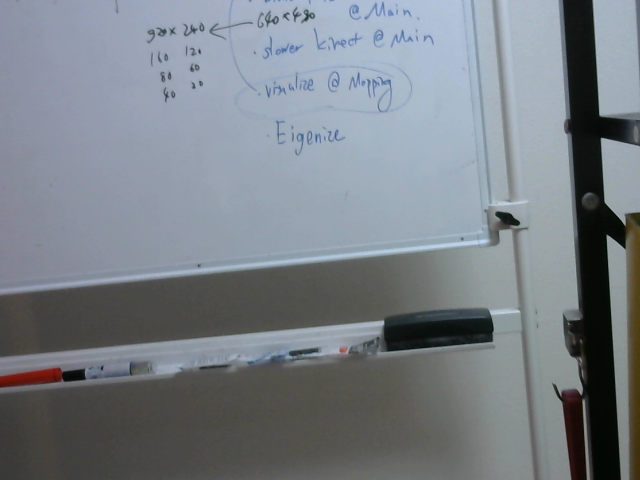 @ Main.
320 x 240 ← 640 x 480
160 120
80 60
40 30
· slower kinect @ Main
· visualize @ Mapping
· Eigenize